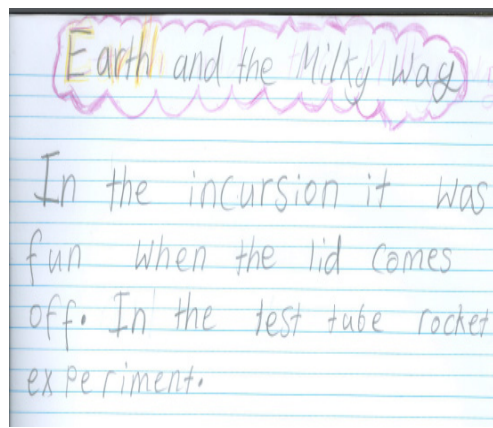 Earth and the Milky Way
In the incursion it was
fun when the lid comes
off. In the test tube rocket
experiment.